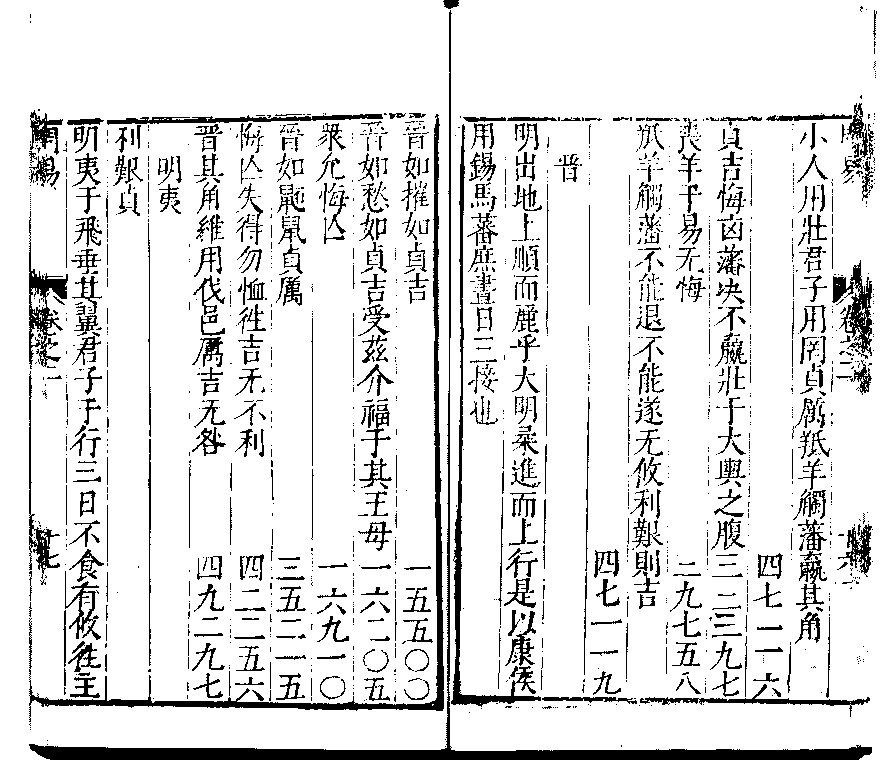 小人用壯君子用罔貞厲羝羊觸藩羸其角
四七一一六
貞吉悔亡藩决不羸壯于大輿之腹三一三九七
喪羊于易无悔 二九七五八
羝羊觸藩不能退不能遂无攸利艱則吉
四七一一九
晉
明出地上順而麗乎大明柔進而上行是以康侯
用錫馬蕃庶晝日三接也
卷之二
晉如摧如貞吉 一五五〇〇
晉如愁如貞吉受茲介福于其王母一六二〇五
衆允悔亾 一六九一〇
晉如鼫鼠貞厲 三五二一五
悔亾失得勿恤徃吉无不利 四二二五六
晉其角維用伐邑厲吉无咎 四九二九七
明夷
利艱貞
明夷于飛垂其翼君子于行三日不食有攸徃主
卷之二 十七